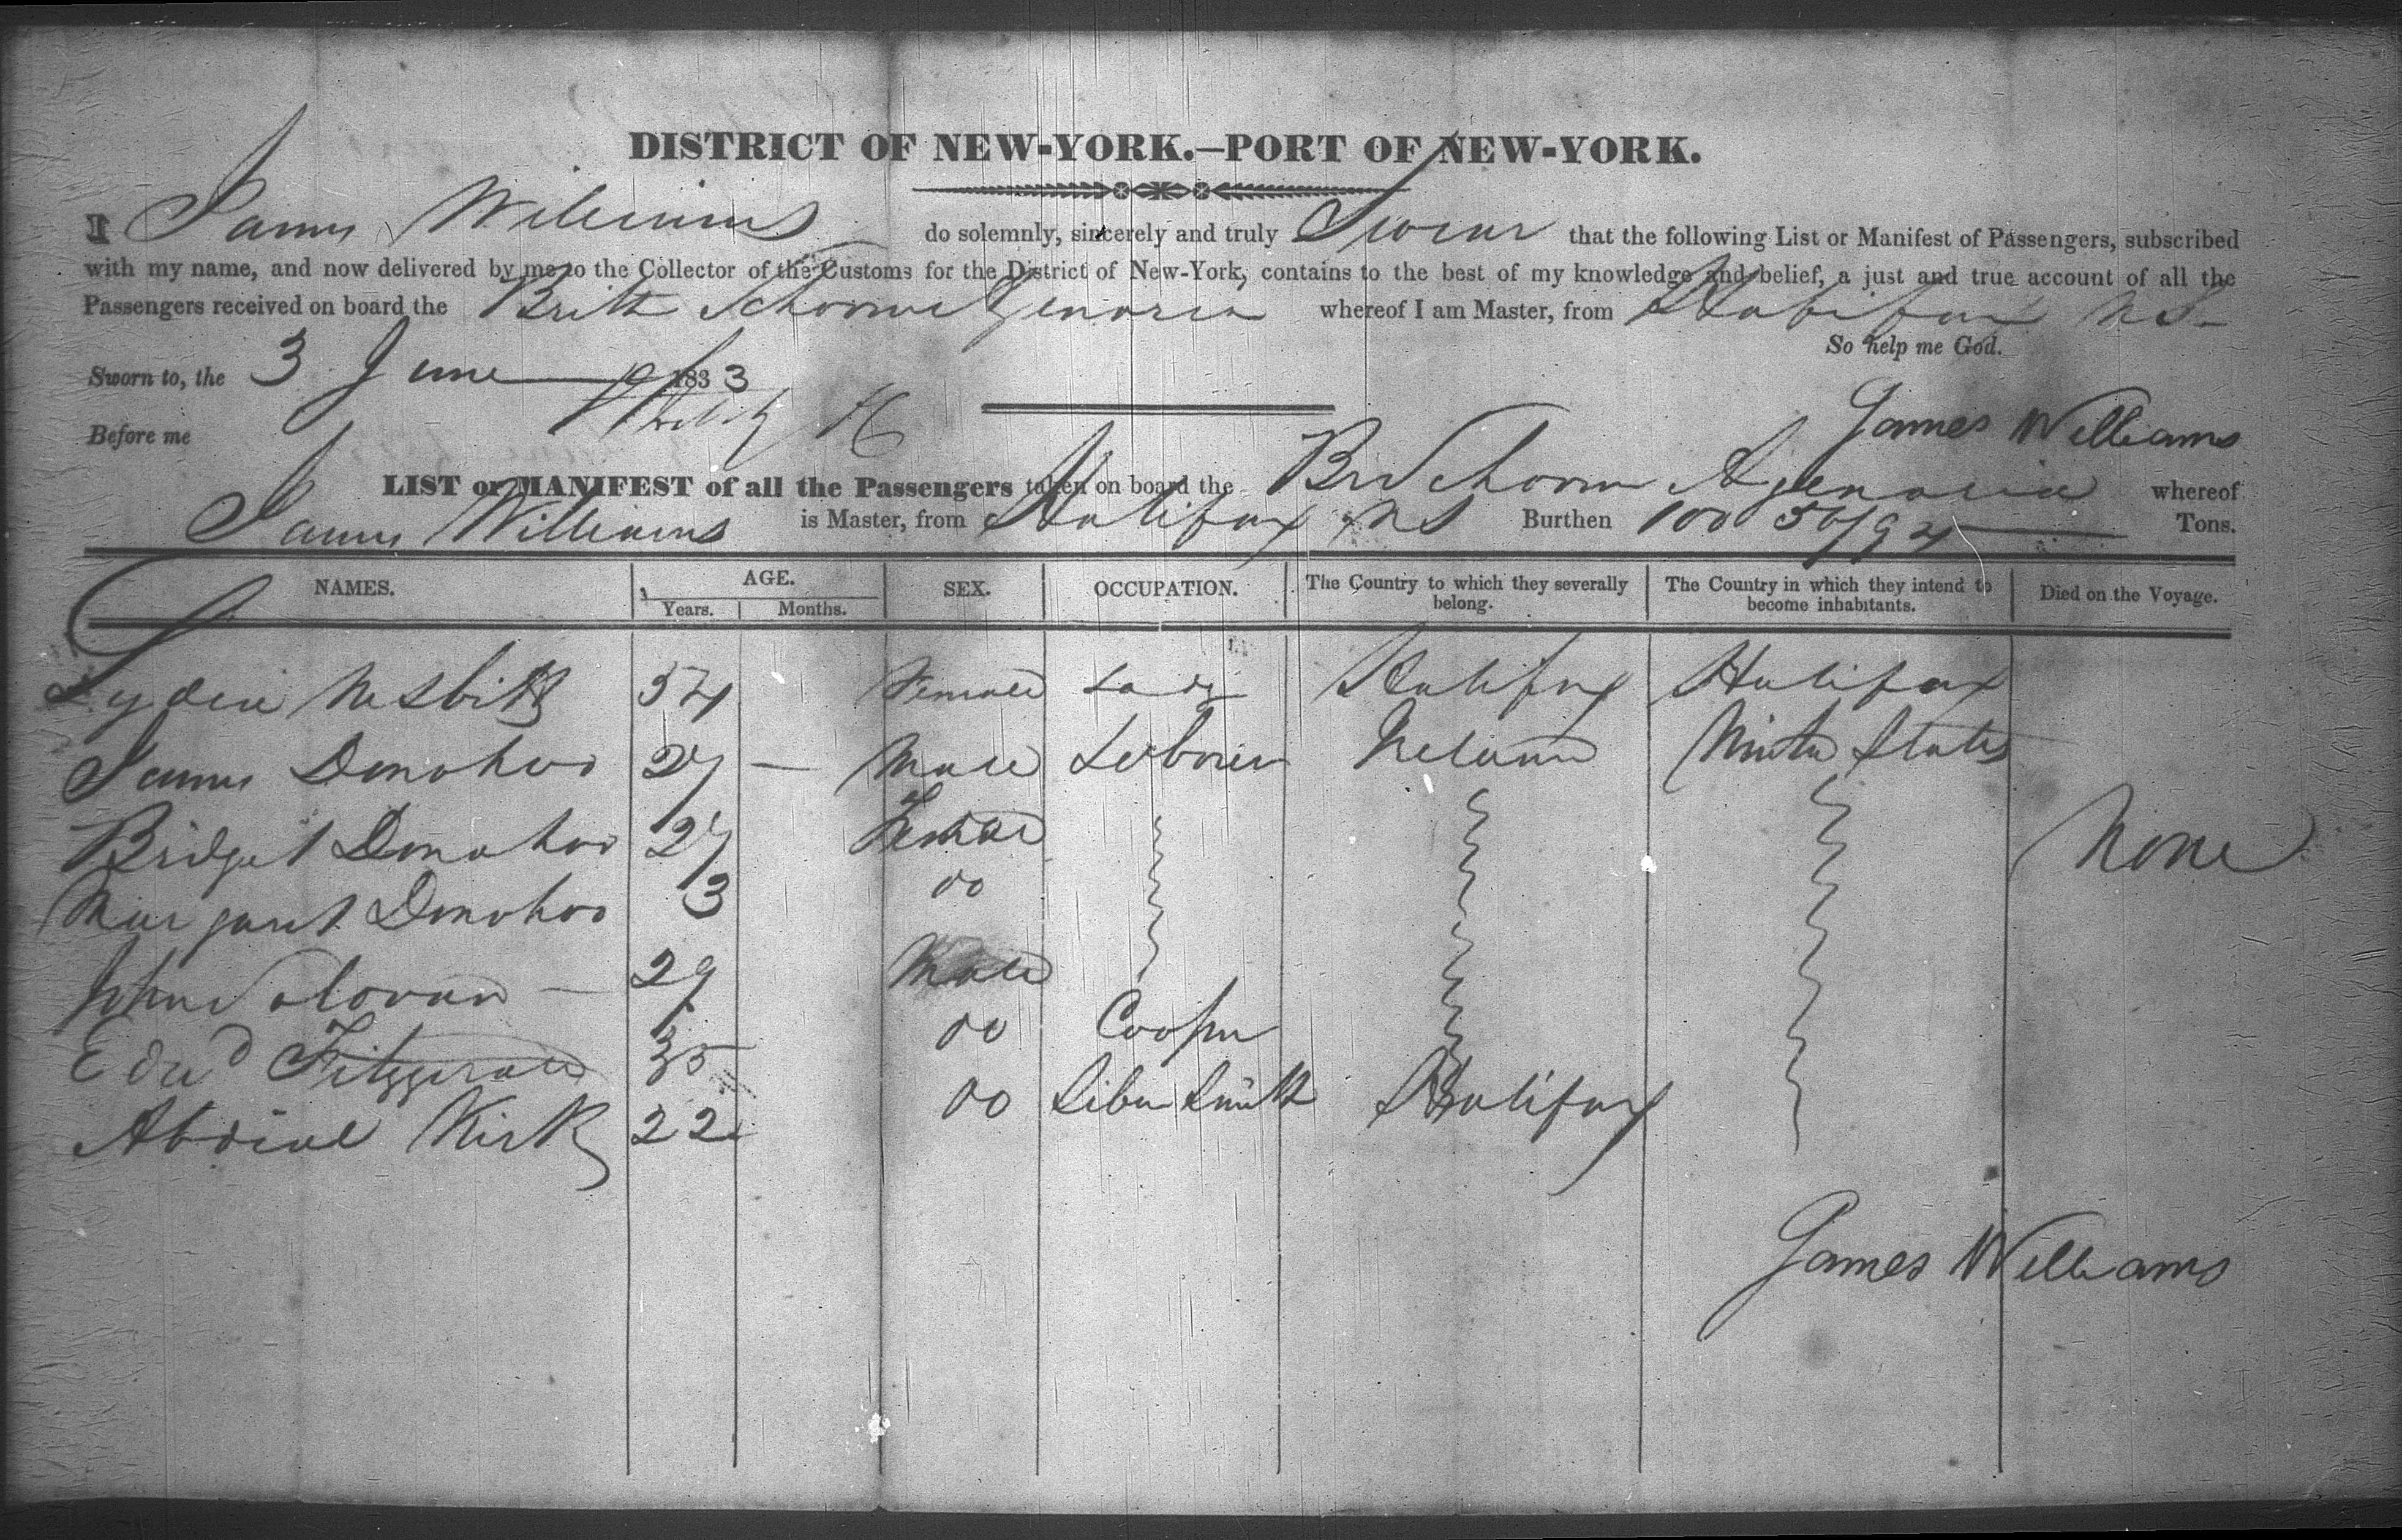 DISTRICT OF NEW-YORK.—PORT OF NEW-YORK.
I James Williams do solemnly, sincerely and truly Swear that the following List or Manifest of Passengers, subscribed
with my name, and now delivered by me to the Collector of the Customs for the District of New-York, contains to the best of my knowledge and belief, a just and true account of all the
Passengers received on board the Brith Schooner Agenoria whereof I am Master, from Halifax NS
So help me God.
Sworn to, the 3 June 1833
Before me
James Williams
LIST or MANIFEST of all the Passengers taken on board the Br Schooner Agenoria whereof
James Williams is Master, from Halifax NS Burthen 100 Tons.
NAMES. AGE. SEX. OCCUPATION. The Country to which they severally belong. The Country in which they intend to become inhabitants. Died on the Voyage.
Years. Months.
Lydia Nesbitt 54 Female Lady Halifax Halifax
James Donohoo 27 — Male Laborer Ireland United States
Bridget Donohoo 27 Female None
Margaret Donohoo 3 do
John 29 Male
Edwd Fitzgerald 35 do Cooper
Abdiel Kirk 22 do Silver Smith Halifax
James Williams